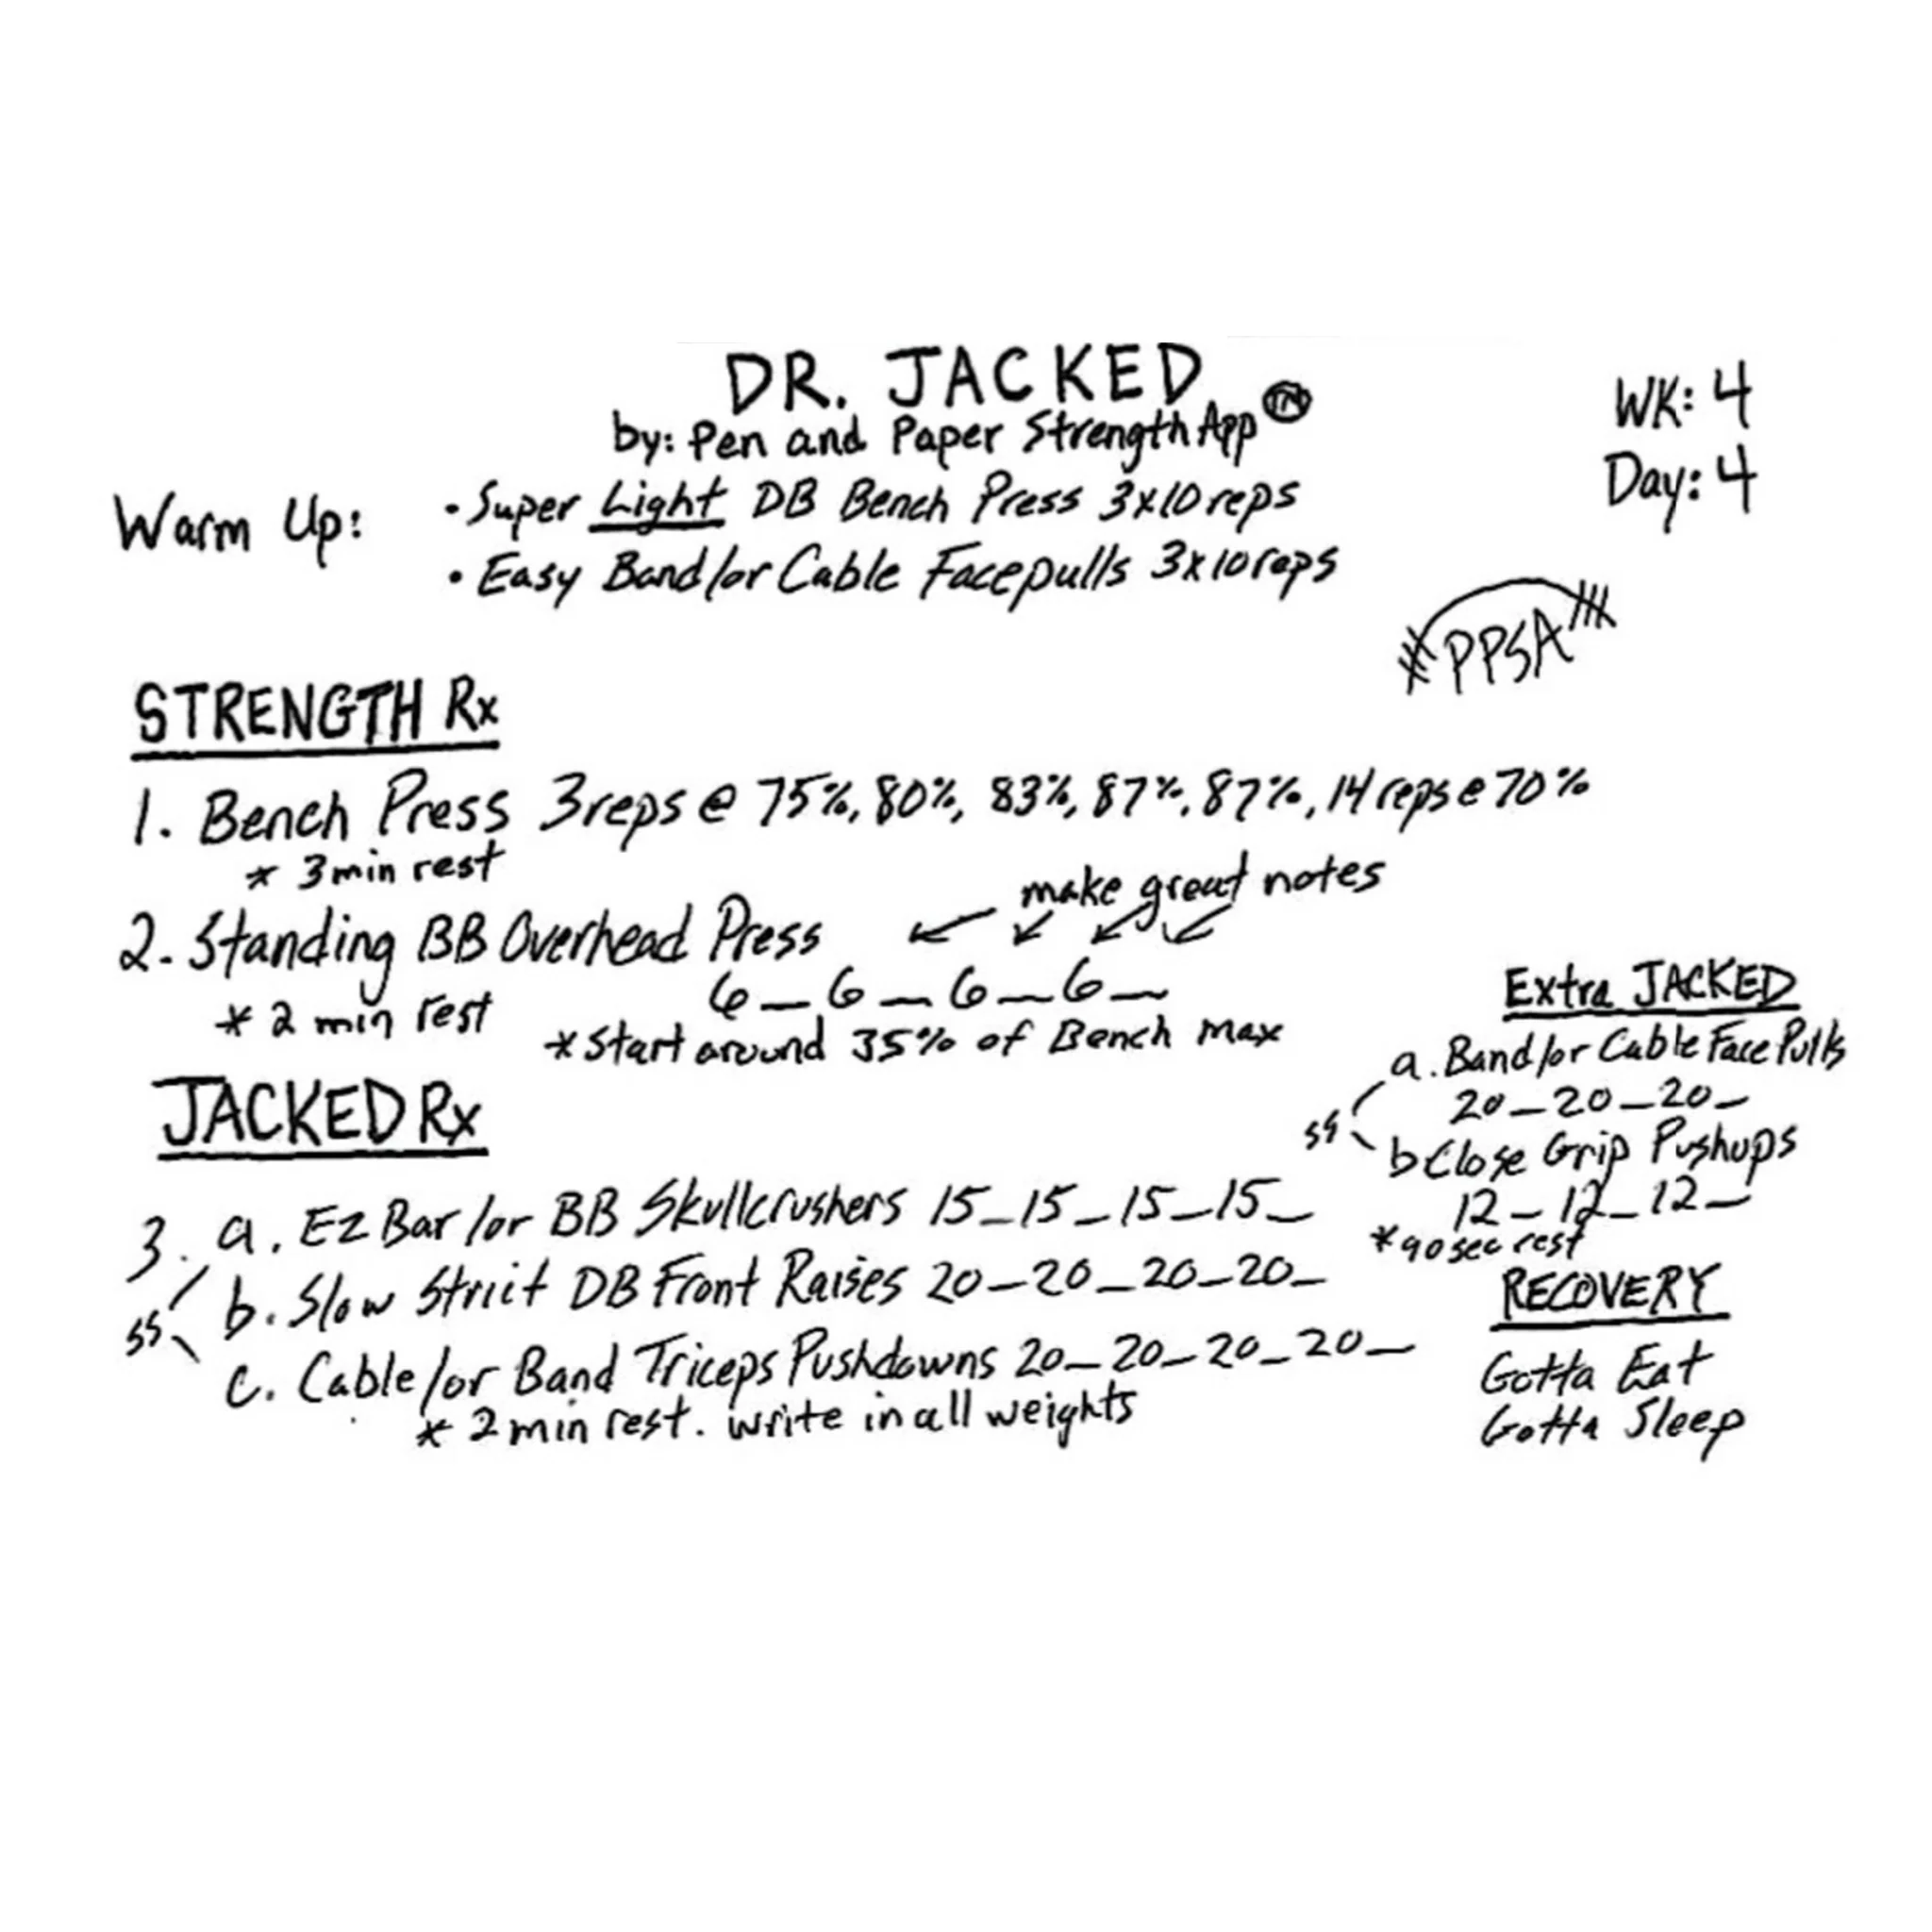 DR. JACKED
by: Pen and Paper Strength App TM
WK: 4
Day: 4
Warm Up:
• Super Light DB Bench Press 3x10 reps
• Easy Band/or Cable Facepulls 3x10 reps
PPSA
STRENGTH Rx
1. Bench Press 3 reps @ 75%, 80%, 83%, 87%, 87%, 14 reps @ 70%
* 3 min rest
make great notes
2. Standing BB Overhead Press
6_6_6_6_
* 2 min rest
* Start around 35% of Bench max
JACKED Rx
3. a. EZ Bar/or BB Skullcrushers 15_15_15_15_
b. Slow Strict DB Front Raises 20_20_20_20_
ss
c. Cable/or Band Triceps Pushdowns 20_20_20_20_
* 2 min rest. write in all weights
Extra JACKED
a. Band/or Cable Face Pulls
20_20_20_
ss
b Close Grip Pushups
12_12_12_
* 90 sec rest
RECOVERY
Gotta Eat
Gotta Sleep